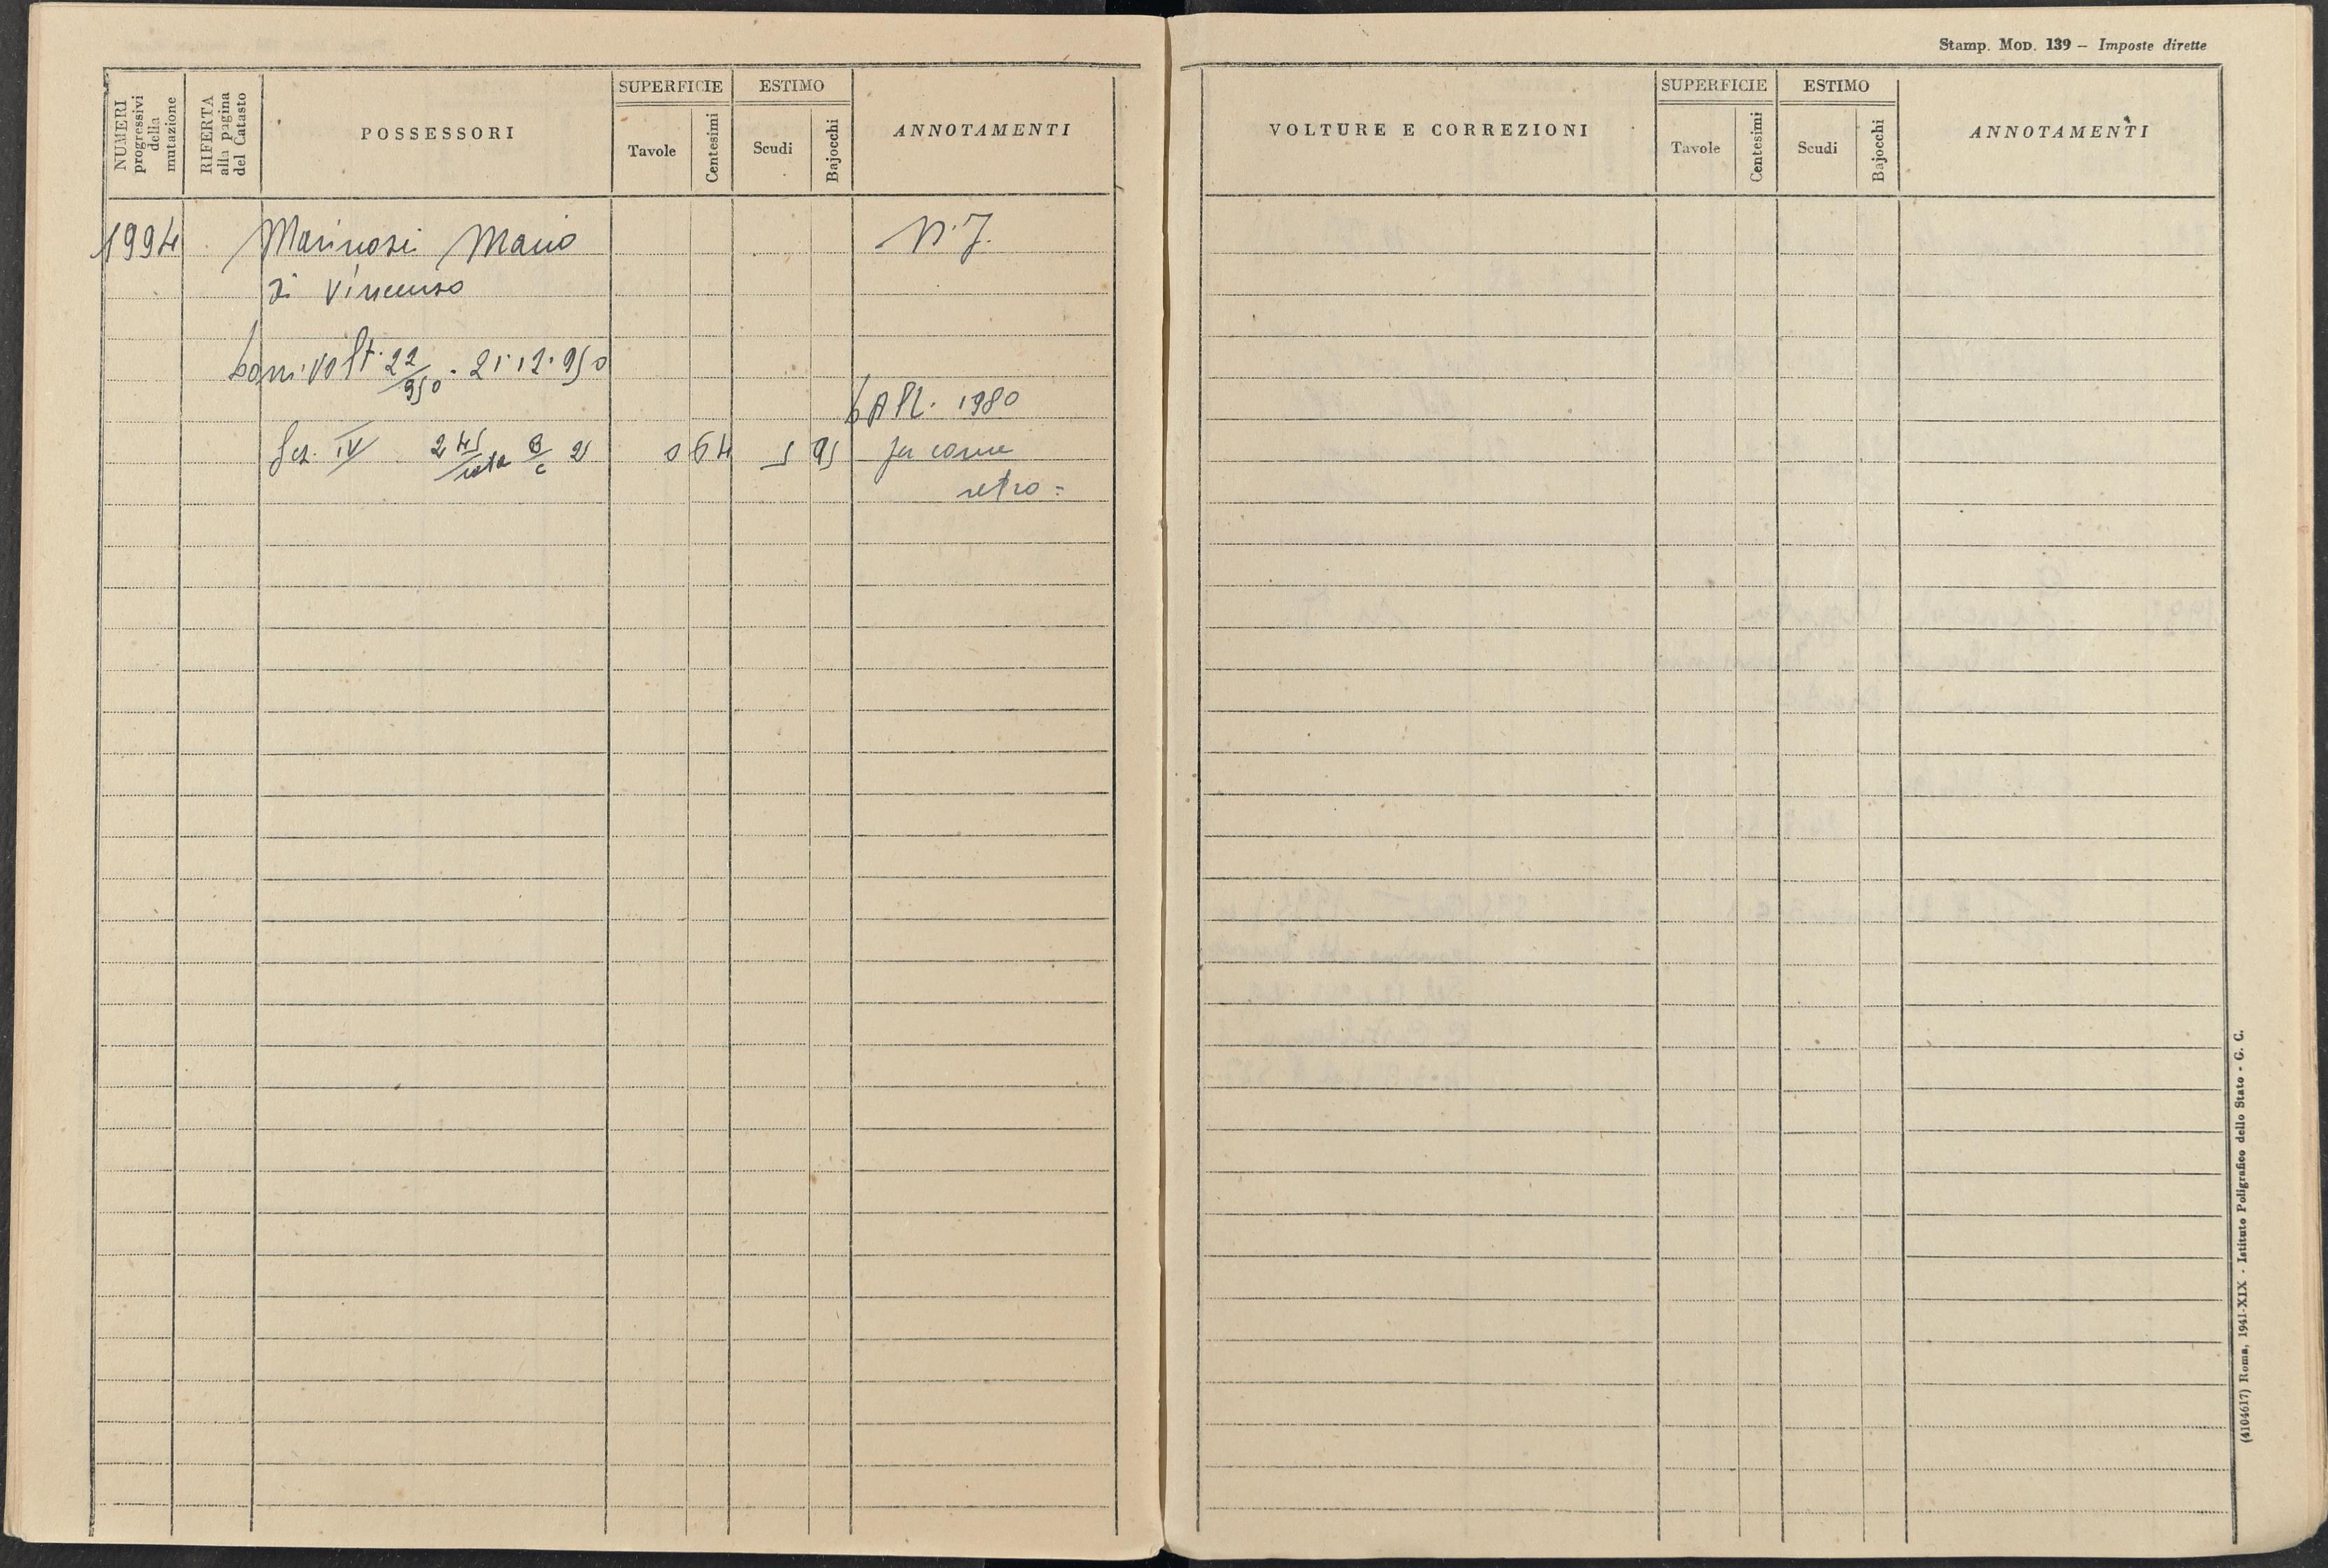 Stamp. Mod. 139 – Imposte dirette
NUMERI progressivi della mutazione
RIFERTA alla pagina del Catasto
POSSESSORI
SUPERFICIE
Tavole
Centesimi
ESTIMO
Scudi
Bajocchi
ANNOTAMENTI
1994 Marinosi Mario N. 7.
di Vincenzo
volt. 22/950. 21.12.950
1980
Sez. IV 2 45/rata B/c 2 0 64 5 95 per come
retro =
VOLTURE E CORREZIONI
SUPERFICIE
Tavole
Centesimi
ESTIMO
Scudi
Bajocchi
ANNOTAMENTI
(4104617) Roma, 1941-XIX - Istituto Poligrafico dello Stato - G. C.